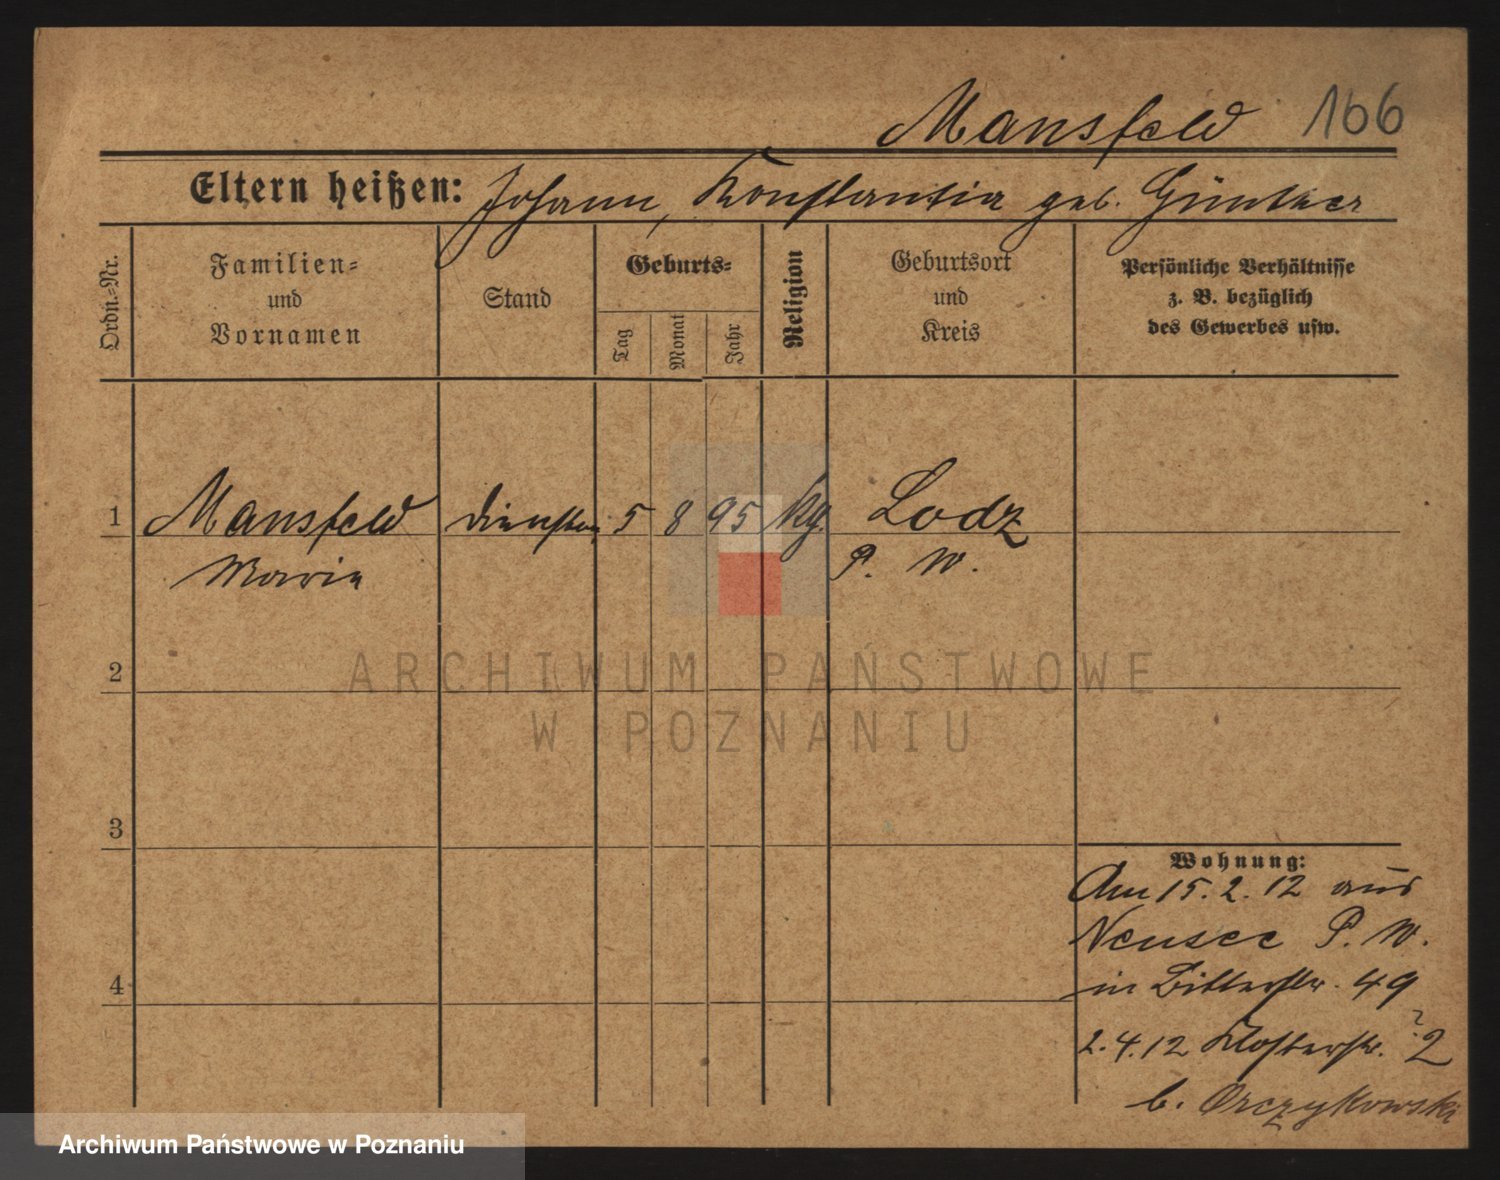 Mansfeld 166
Eltern heißen: Johann, Konstantia geb. Günther
Ordn.-Nr.
Familien-
und
Vornamen
Stand
Geburts-
Tag
Monat
Jahr
Religion
Geburtsort
und
Kreis
Persönliche Verhältnisse
z. B. bezüglich
des Gewerbes usw.
1 Mansfeld 5 8 95 kg. Lodz
Maria P. W.
2
3
4
Wohnung:
Am 15. 2. 12 aus
Neusee P. W.
in Bitterstr. 49
2. 4. 12 Klosterstr. ? 2
b. Orczykowski
ARCHIWUM PAŃSTWOWE
W POZNANIU
Archiwum Państwowe w Poznaniu